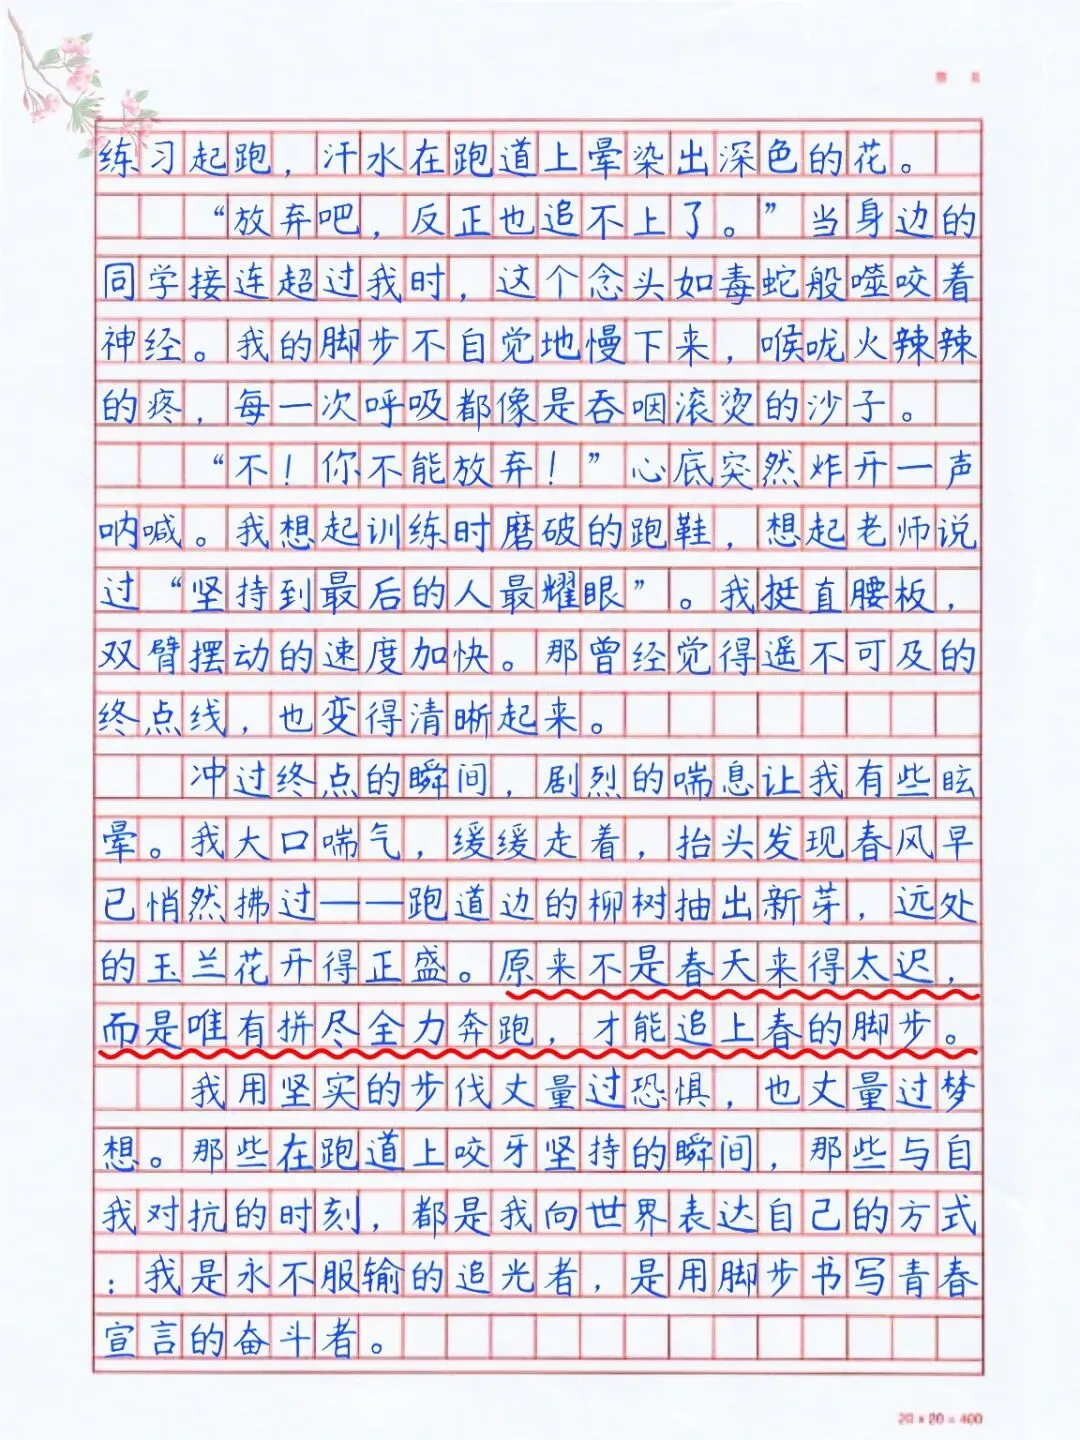 练习起跑，汗水在跑道上晕染出深色的花。
“放弃吧，反正也追不上了。”当身边的
同学接连超过我时，这个念头如毒蛇般噬咬着
神经。我的脚步不自觉地慢下来，喉咙火辣辣
的疼，每一次呼吸都像是吞咽滚烫的沙子。
“不！你不能放弃！”心底突然炸开一声
呐喊。我想起训练时磨破的跑鞋，想起老师说
过“坚持到最后的人最耀眼”。我挺直腰板，
双臂摆动的速度加快。那曾经觉得遥不可及的
终点线，也变得清晰起来。
冲过终点的瞬间，剧烈的喘息让我有些眩
晕。我大口喘气，缓缓走着，抬头发现春风早
已悄然拂过——跑道边的柳树抽出新芽，远处
的玉兰花开得正盛。原来不是春天来得太迟，
而是唯有拼尽全力奔跑，才能追上春的脚步。
我用坚实的步伐丈量过恐惧，也丈量过梦
想。那些在跑道上咬牙坚持的瞬间，那些与自
我对抗的时刻，都是我向世界表达自己的方式
：我是永不服输的追光者，是用脚步书写青春
宣言的奋斗者。
20×20=400